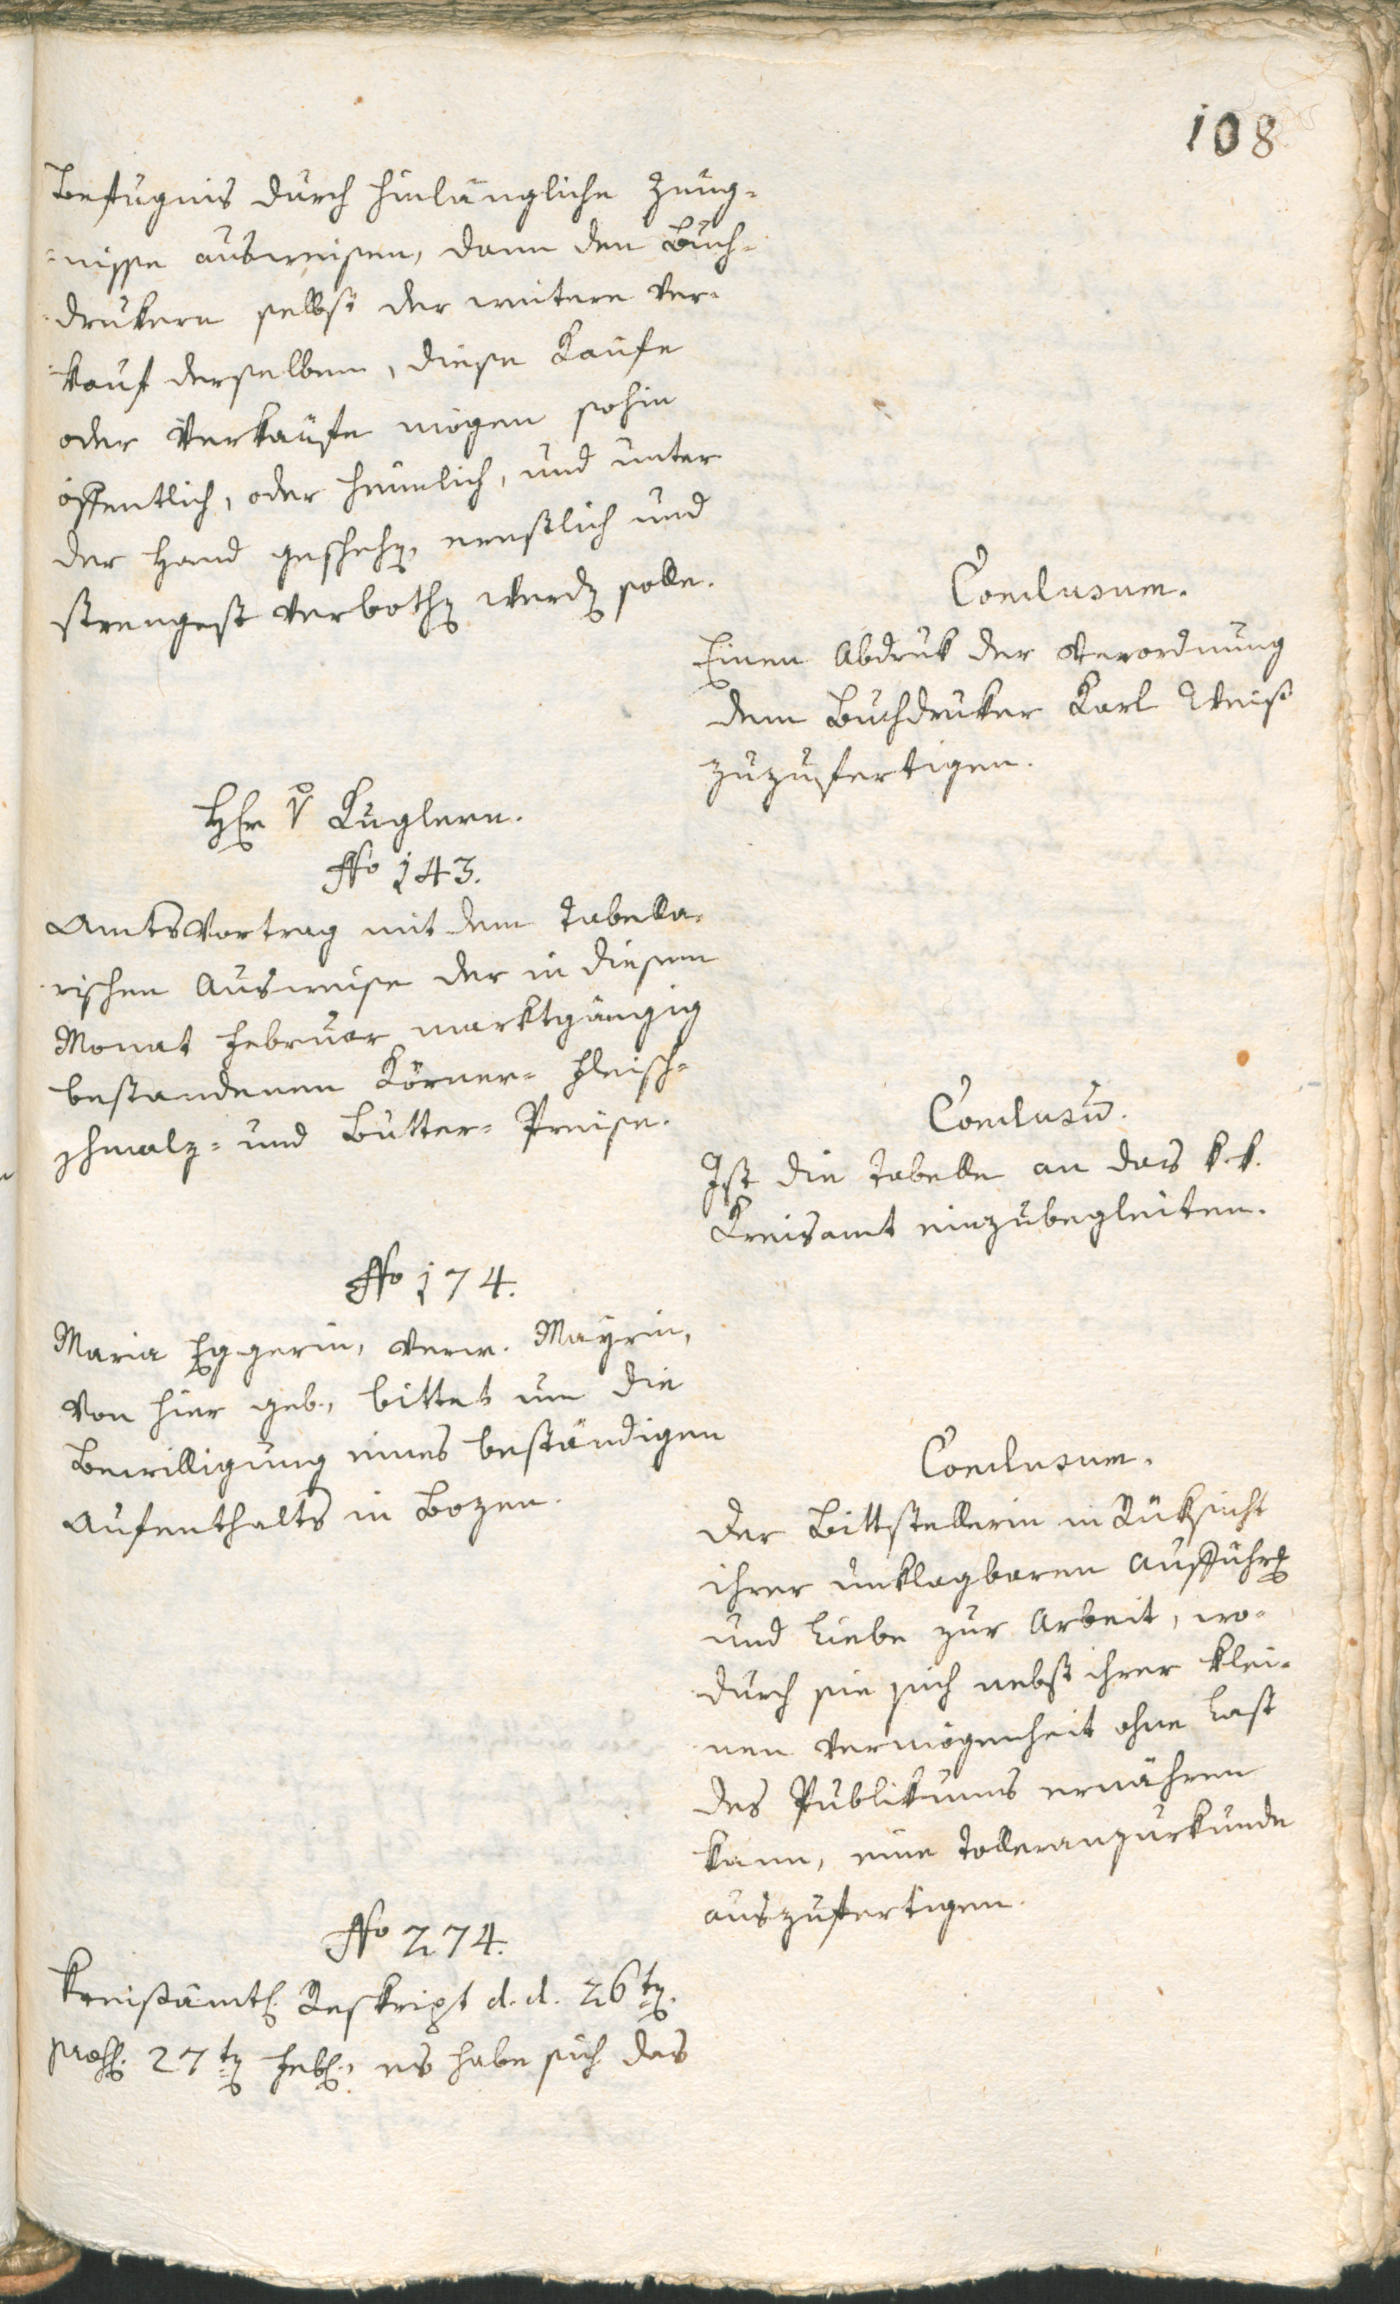 108
Befugnis durch hinlängliche Zeug-
-nisse ausweisen, dann den Buch-
-drukern selbst der weitere Ver-
-kauf derselben, diese Kaufe
oder Verkaufe mögen sohin
öffentlich, oder heimlich, und unter
der Hand geschehen, ernstlich und
strengest verbothen werden solle.
Conclusum.
Einen Abdruk der Verordnung
dem Buchdruker Karl Weiß
zuzufertigen.
Herr v Kuglern.
No 143.
Amtsvortrag mit dem Tabella-
rischen Ausweise der in diesem
Monat Februar marktgängig
bestandenen Körner- Fleisch-
schmalz- und Butter- Preise.
Conclusum.
Ist die Tabelle an das k.k.
Kreisamt einzubegleiten.
No 174.
Maria Eggerin, verw. Mayrin,
von hier geb., bittet um die
Bewilligung eines beständigen
Aufenthalts in Bozen.
Conclusum.
Der Bittstellerin in Rüksicht
ihrer unklagbaren Aufführung
und Liebe zur Arbeit, wo-
durch sie sich nebst ihrer klei-
nen Vermögenheit ohne Last
des Publikums ernähren
kann, eine Tolleranzurkunde
auszufertigen.
No 274.
Kreisämtl. Reskript d. d. 26ten.
27ten Feb., es habe sich das